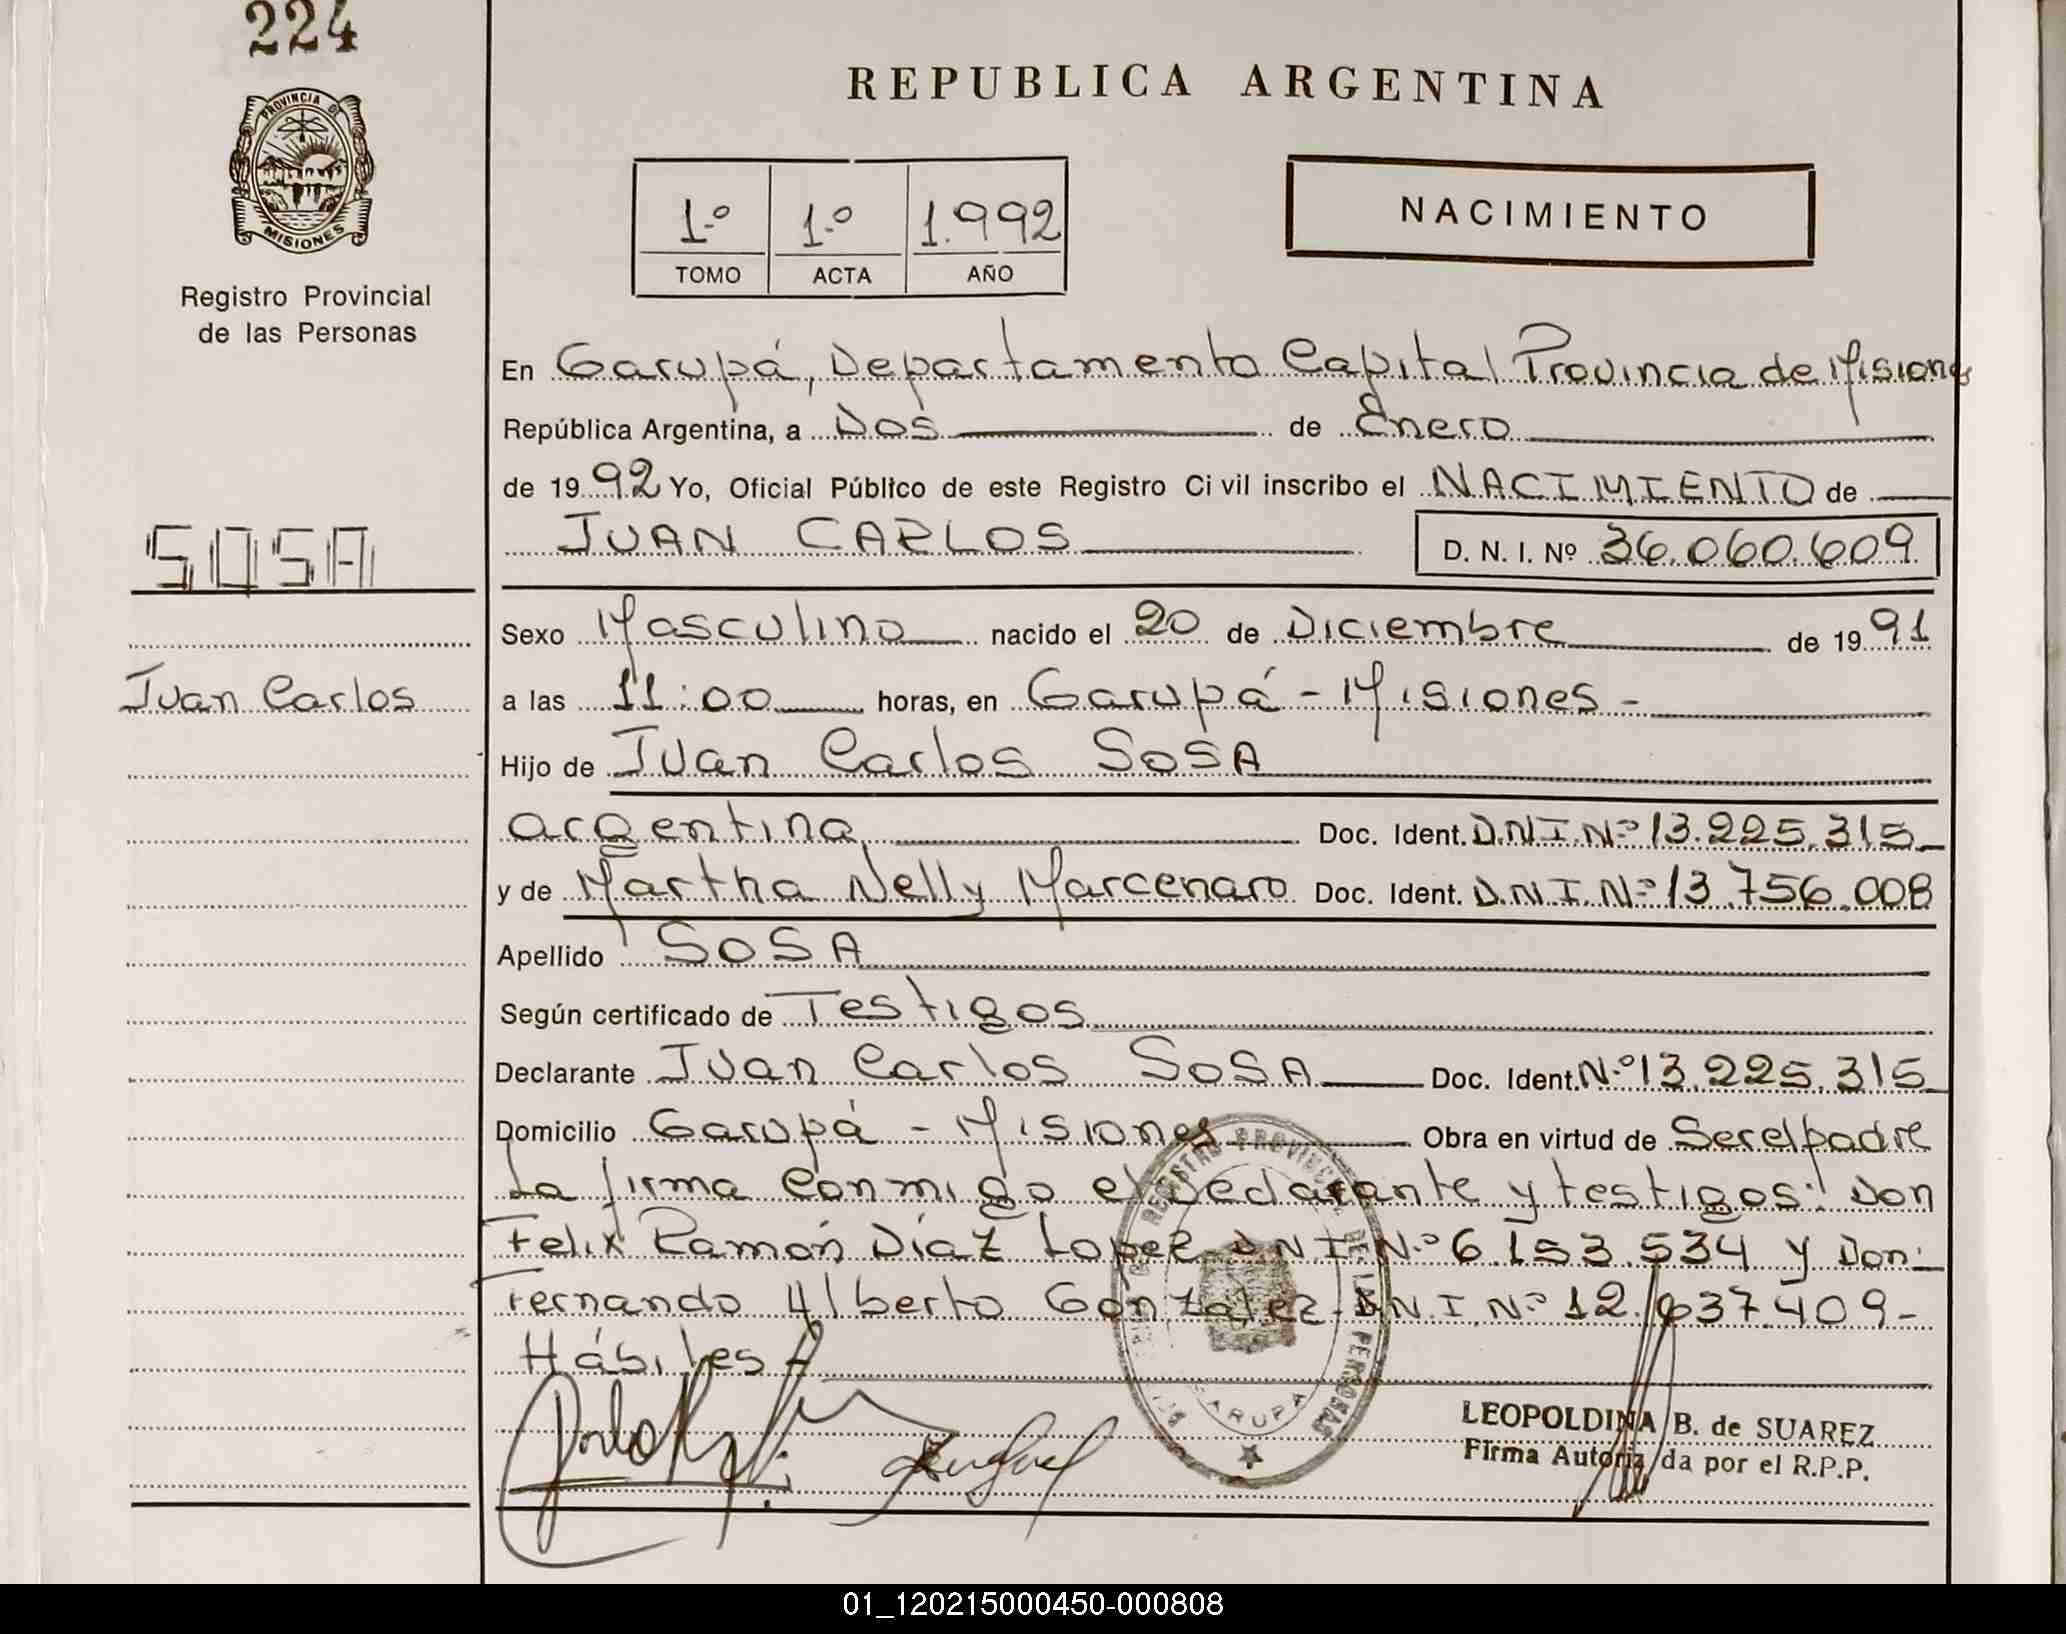 224
PROVINCIA DE
MISIONES
Registro Provincial
de las Personas
SOSA
Juan Carlos
REPUBLICA ARGENTINA
1.º 1.º 1.992
TOMO ACTA AÑO
NACIMIENTO
En Garupá, Departamento Capital Provincia de Misiones
República Argentina, a Dos de Enero
de 1992 Yo, Oficial Público de este Registro Civil inscribo el NACIMIENTO de
JUAN CARLOS D. N. I. Nº 36.060.609.
Sexo Masculino nacido el 20 de Diciembre de 1991
a las 11:00 horas, en Garupá - Misiones -
Hijo de Juan Carlos SOSA
argentina Doc. Ident. D.N.I.Nº 13.225.315
y de Martha Nelly Marcenaro Doc. Ident. D.N.I.Nº 13.756.008
Apellido SOSA
Según certificado de Testigos
Declarante Juan Carlos SOSA Doc. Ident. Nº 13.225.315
Domicilio Garupá - Misiones Obra en virtud de Ser el padre
La firma conmigo el declarante y testigos: Don
Felix Ramón Díaz Lopez D.N.I Nº 6.153.534 y Don
Fernando Alberto Gonzalez D.N.I. Nº 12.637.409-
Hábiles
REGISTRO PROVINCIAL DE LAS PERSONAS
GARUPA
LEOPOLDINA B. de SUAREZ
Firma Autorizada por el R.P.P.
01_120215000450-000808